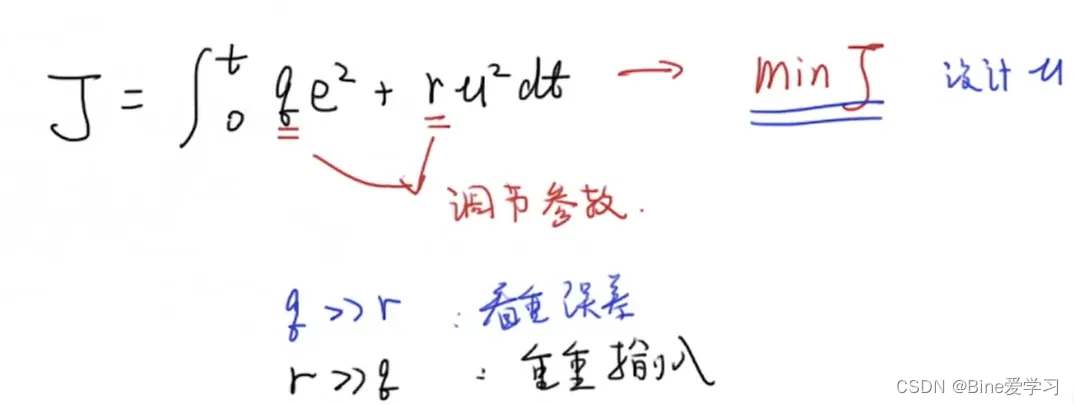 J = ∫₀ᵗ qe² + ru² dt → min J 设计 u
调节参数.
q >> r : 看重误差
r >> q : 重重输入
CSDN @Bine爱学习